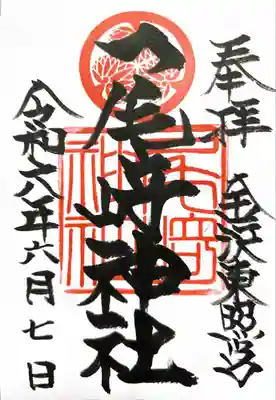 奉拝
金沢東照宮
尾崎神社
令和六年六月七日